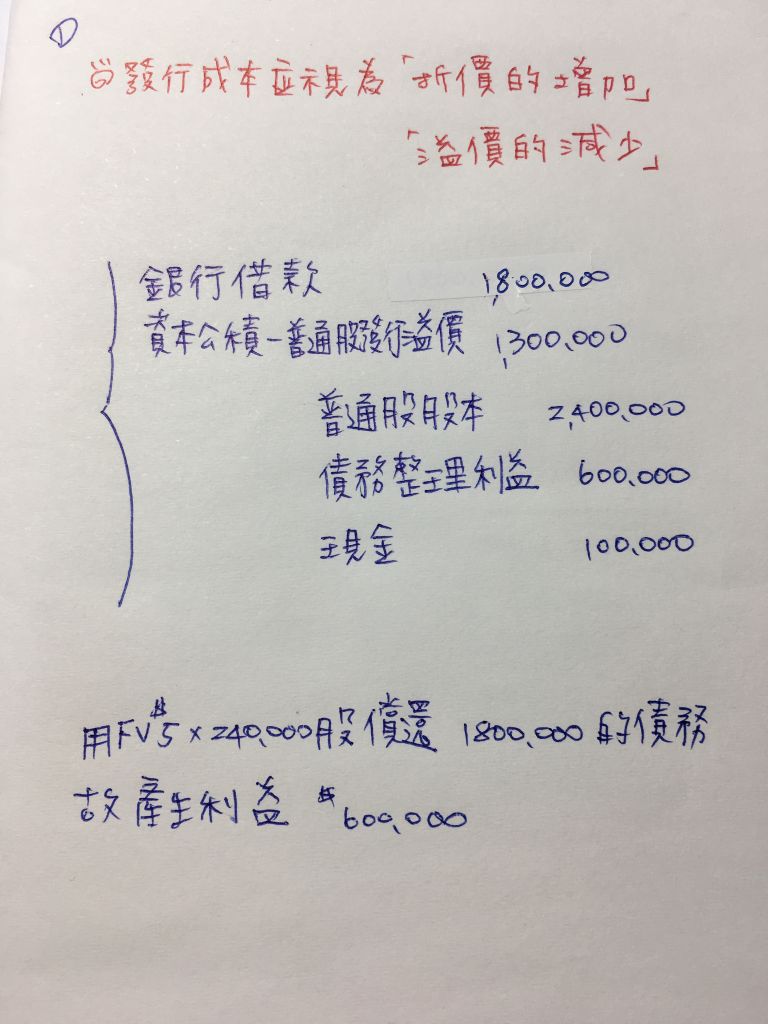 ①
當發行成本應視為「折價的增加」
「溢價的減少」
銀行借款 1,800,000
資本公積－普通股發行溢價 1,300,000
普通股股本 2,400,000
債務整理利益 600,000
現金 100,000
用FV $5 × 240,000股償還 1800,000 的債務
故產生利益 $600,000